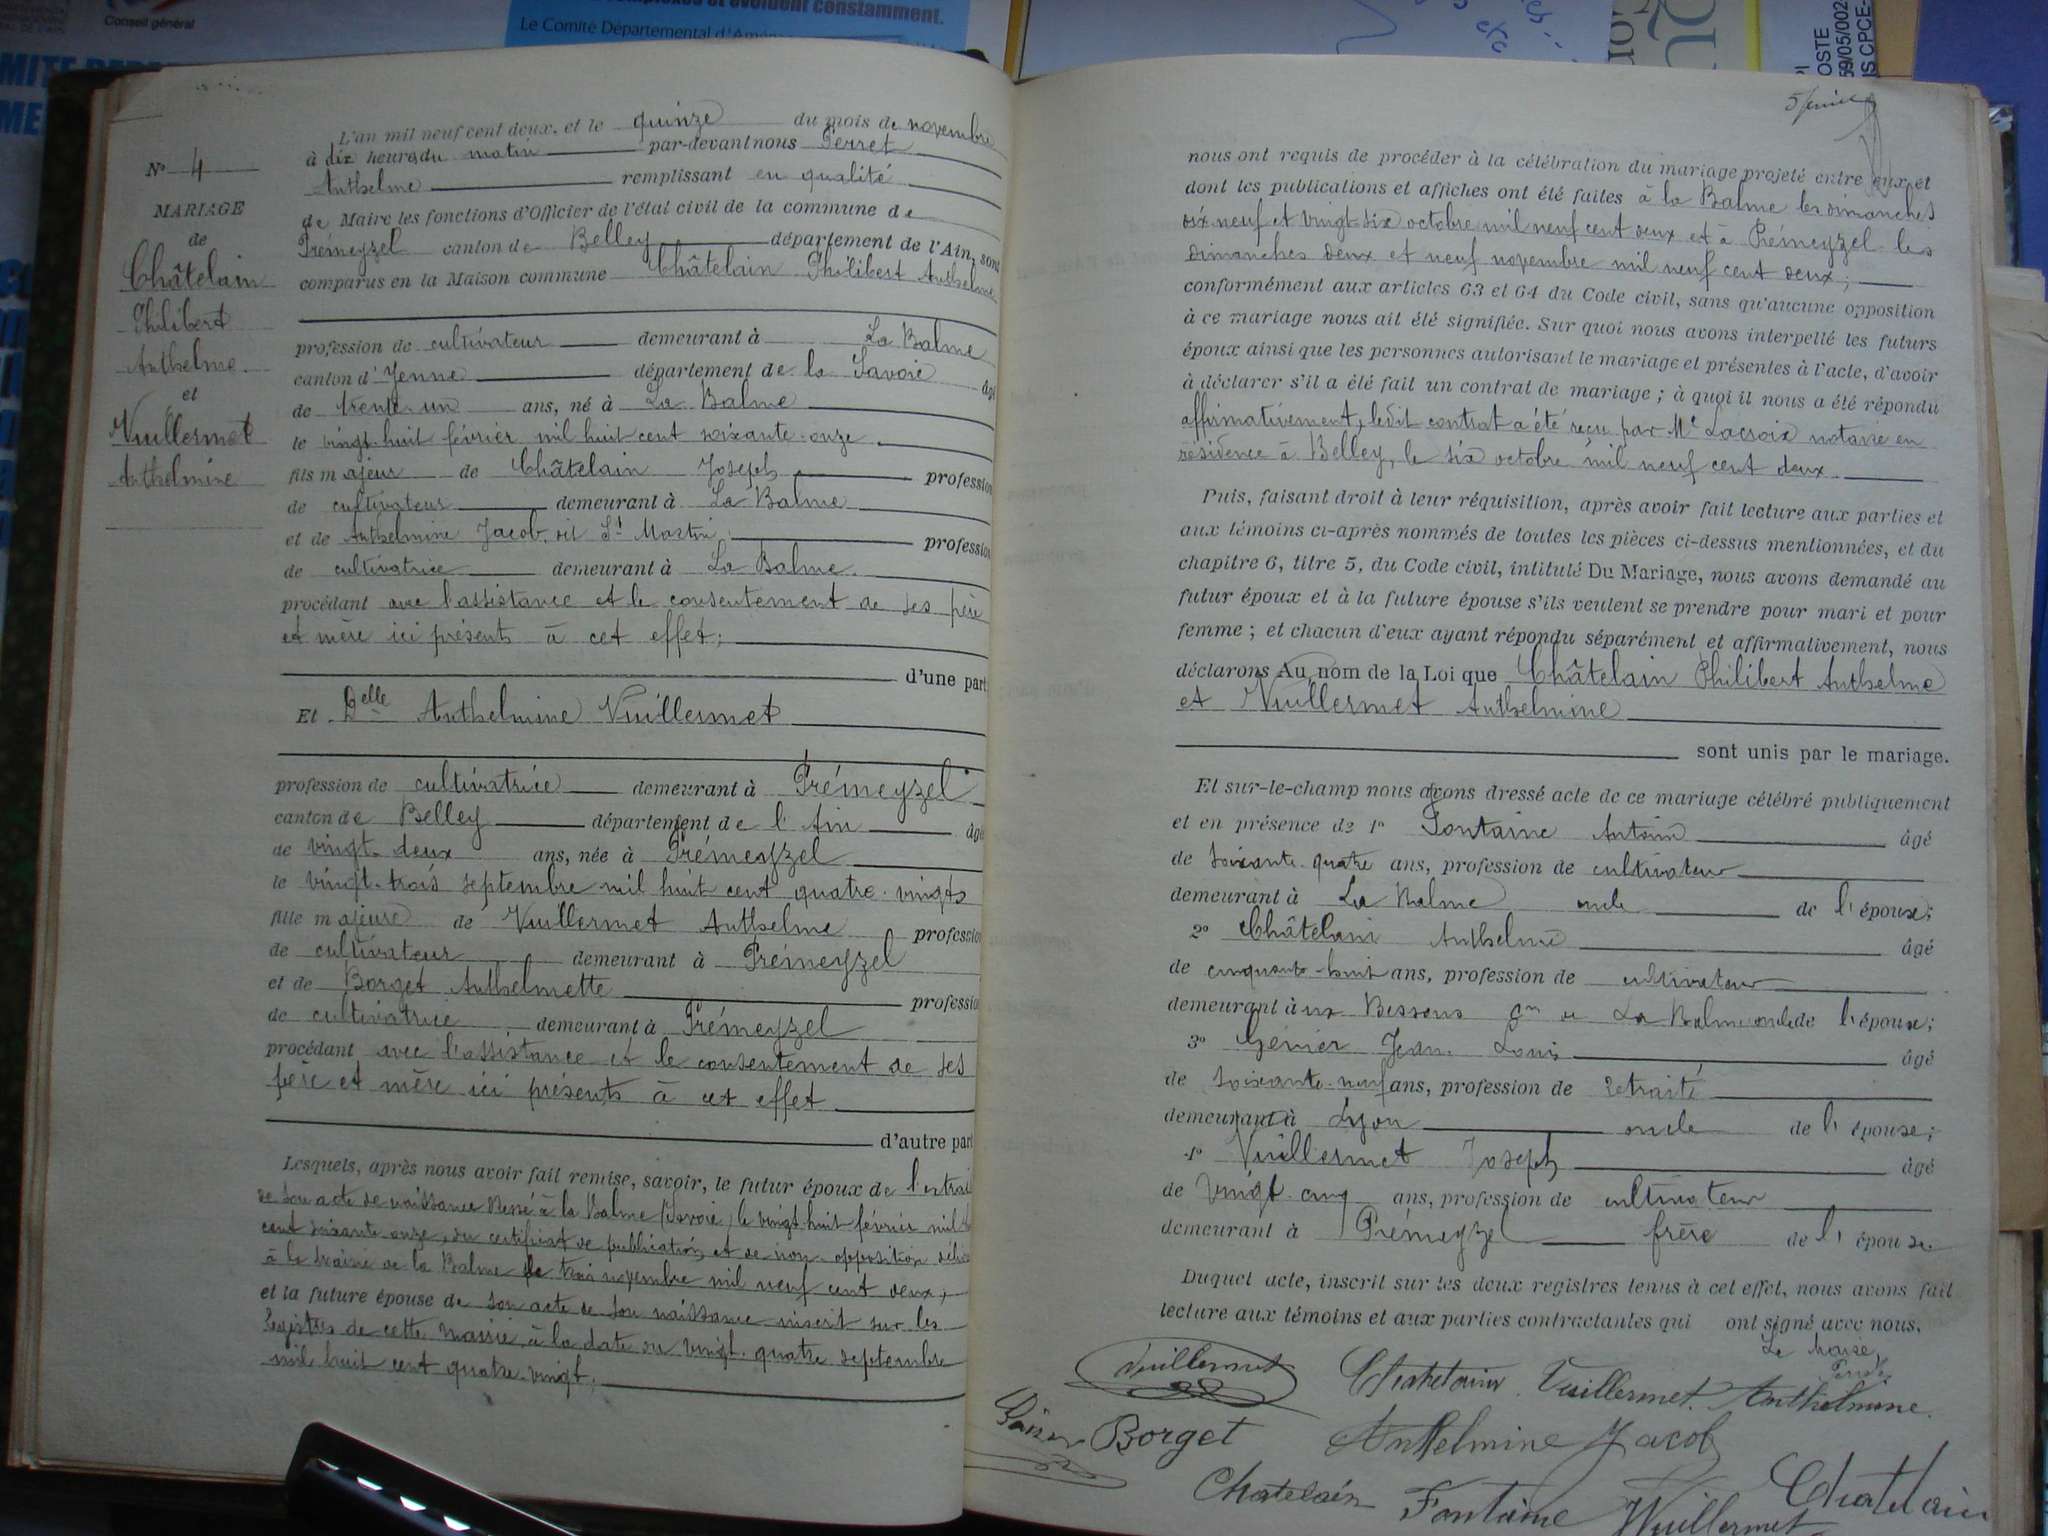 Conseil général
complexes et évoluent constamment.
Le Comité Départemental d'Amén
OSTE
59/05/002
IS CPCE-
N° 4
MARIAGE
de
Châtelain
Philibert
Anthelme
et
Vuillermet
Anthelmine
L'an mil neuf cent deux, et le quinze du mois de novembre
à dix heures du matin par-devant nous Perret
Anthelme remplissant en qualité
de Maire les fonctions d'Officier de l'état civil de la commune de
Prémeyzel canton de Belley département de l'Ain, sont
comparus en la Maison commune Châtelain Philibert Anthelme
profession de cultivateur demeurant à La Balme
canton d'Yenne département de la Savoie âgé
de trente-un ans, né à La Balme
le vingt-huit février mil huit cent soixante-onze
fils majeur de Châtelain Joseph profession
de cultivateur demeurant à La Balme
et de Anthelmine Jacob dit St Martin profession
de cultivatrice demeurant à La Balme
procédant avec l'assistance et le consentement de ses père
et mère ici présents à cet effet;
d'une part
Et Delle Anthelmine Vuillermet
profession de cultivatrice demeurant à Prémeyzel
canton de Belley département de l'Ain âgé
de vingt-deux ans, née à Prémeyzel
le vingt-trois septembre mil huit cent quatre-vingts
fille majeure de Vuillermet Anthelme profession
de cultivateur demeurant à Prémeyzel
et de Borget Anthelmette profession
de cultivatrice demeurant à Prémeyzel
procédant avec l'assistance et le consentement de ses
père et mère ici présents à cet effet
d'autre part
Lesquels, après nous avoir fait remise, savoir, le futur époux de l'extrait
de son acte de naissance dressé à la Balme (Savoie) le vingt-huit février mil
cent soixante onze, du certificat de publication et de non-opposition
à la mairie de la Balme le trois novembre mil neuf cent deux,
et la future épouse de son acte de naissance inscrit sur les
registres de cette mairie à la date du vingt-quatre septembre
mil huit cent quatre-vingt;
nous ont requis de procéder à la célébration du mariage projeté entre eux et
dont les publications et affiches ont été faites à la Balme les dimanches
dix neuf et vingt-six octobre mil neuf cent deux et à Prémeyzel les
dimanches deux et neuf novembre mil neuf cent deux;
conformément aux articles 63 et 64 du Code civil, sans qu'aucune opposition
à ce mariage nous ait été signifiée. Sur quoi nous avons interpellé les futurs
époux ainsi que les personnes autorisant le mariage et présentes à l'acte, d'avoir
à déclarer s'il a été fait un contrat de mariage; à quoi il nous a été répondu
affirmativement, ledit contrat a été reçu par Me Lacroix notaire en
résidence à Belley, le six octobre mil neuf cent deux
Puis, faisant droit à leur réquisition, après avoir fait lecture aux parties et
aux témoins ci-après nommés de toutes les pièces ci-dessus mentionnées, et du
chapitre 6, titre 5, du Code civil, intitulé Du Mariage, nous avons demandé au
futur époux et à la future épouse s'ils veulent se prendre pour mari et pour
femme; et chacun d'eux ayant répondu séparément et affirmativement, nous
déclarons Au nom de la Loi que Châtelain Philibert Anthelme
et Vuillermet Anthelmine
sont unis par le mariage.
Et sur-le-champ nous avons dressé acte de ce mariage célébré publiquement
et en présence de 1° Fontaine Antoine âgé
de soixante-quatre ans, profession de cultivateur
demeurant à La Balme oncle de l'épouse;
2° Châtelain Anthelme âgé
de cinquante-huit ans, profession de cultivateur
demeurant à ux Bessons Cne de La Balme oncle de l'épouse;
3° Génier Jean Louis âgé
de soixante-neuf ans, profession de retraité
demeurant à Lyon oncle de l'épouse;
4° Vuillermet Joseph âgé
de vingt-cinq ans, profession de cultivateur
demeurant à Prémeyzel frère de l'épouse
Duquel acte, inscrit sur les deux registres tenus à cet effet, nous avons fait
lecture aux témoins et aux parties contractantes qui ont signé avec nous.
Le Maire,
Perret
Vuillermet Chatelain Vuillermet Anthelmine
Borget Anthelmine Jacob
Chatelain Fontaine Vuillermet Chatelain